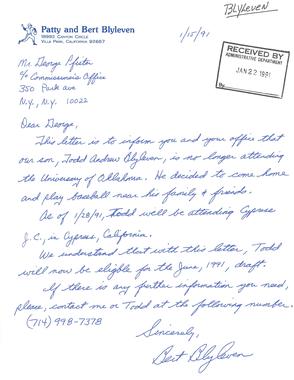 BLYLEVEN
Patty and Bert Blyleven
18992 CANYON CIRCLE
VILLA PARK, CALIFORNIA 92667
1/15/91
RECEIVED BY
ADMINISTRATIVE DEPARTMENT
JAN 22 1991
By:
Mr. George Pfister
c/o Commissioner's Office
350 Park ave
N.Y., N.Y. 10022
Dear George,
This letter is to inform you and your office that
our son, Todd Andrew Blyleven, is no longer attending
the University of Oklahoma. He decided to come home
and play baseball near his family & friends.
As of 1/28/91, Todd will be attending Cypress
J.C., in Cypress, California.
We understand that with this letter, Todd
will now be eligible for the June, 1991, draft.
If there is any further information you need,
please, contact me or Todd at the following number.
(714) 998-7378
Sincerely,
Bert Blyleven